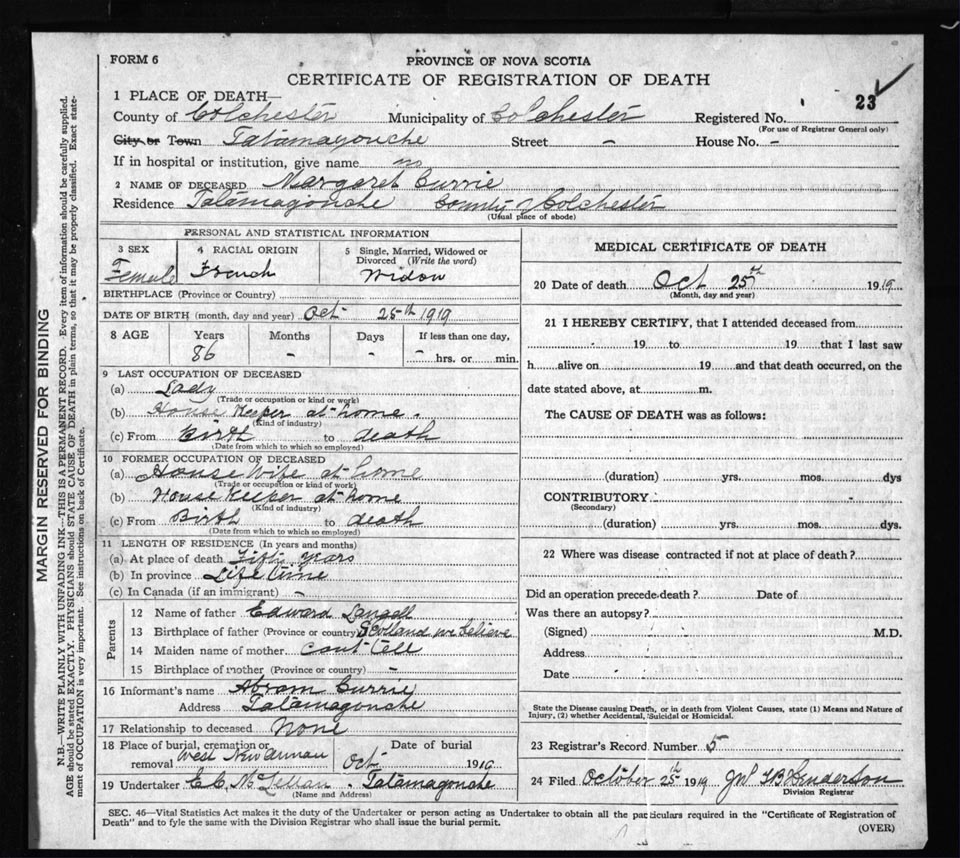 FORM 6
PROVINCE OF NOVA SCOTIA
CERTIFICATE OF REGISTRATION OF DEATH
23
1 PLACE OF DEATH—
County of Colchester Municipality of Colchester Registered No.
(For use of Registrar General only)
City or Town Tatamagouche Street - House No. -
If in hospital or institution, give name no
2 NAME OF DECEASED Margaret Currie
Residence Tatamagouche County Colchester
(Usual place of abode)
PERSONAL AND STATISTICAL INFORMATION
3 SEX Female
4 RACIAL ORIGIN French
5 Single, Married, Widowed or Divorced (Write the word) Widow
BIRTHPLACE (Province or Country)
DATE OF BIRTH (month, day and year) Oct 25th 1919
8 AGE Years 86 Months - Days - If less than one day, - hrs. or min.
9 LAST OCCUPATION OF DECEASED
(a) Lady
(Trade or occupation or kind or work)
(b) House Keeper at home.
(Kind of industry)
(c) From Birth to death
(Date from which to which so employed)
10 FORMER OCCUPATION OF DECEASED
(a) House Wife at home
(Trade or occupation or kind of work)
(b) House Keeper at home
(Kind of industry)
(c) From Birth to death
(Date from which to which so employed)
11 LENGTH OF RESIDENCE (In years and months)
(a) At place of death Fifty years
(b) In province Life time
(c) In Canada (if an immigrant) -
Parents
12 Name of father Edward
13 Birthplace of father (Province or country) Scotland we believe
14 Maiden name of mother cant tell
15 Birthplace of mother (Province or country) -
16 Informant's name Abram Currie
Address Tatamagouche
17 Relationship to deceased None
18 Place of burial, cremation or removal West New Annan Date of burial Oct 1919
19 Undertaker Tatamagouche
(Name and Address)
MEDICAL CERTIFICATE OF DEATH
20 Date of death Oct 25th 1919
(Month, day and year)
21 I HEREBY CERTIFY, that I attended deceased from
19 to 19 that I last saw
h alive on 19 and that death occurred, on the
date stated above, at m.
The CAUSE OF DEATH was as follows:
(duration) yrs. mos. dys
CONTRIBUTORY
(Secondary)
(duration) yrs. mos. dys.
22 Where was disease contracted if not at place of death?
Did an operation precede death? Date of
Was there an autopsy?
(Signed) M.D.
Address
Date
State the Disease causing Death, or in death from Violent Causes, state (1) Means and Nature of
Injury, (2) whether Accidental, Suicidal or Homicidal.
23 Registrar's Record Number 5
24 Filed October 25th 1919 Henderson
Division Registrar
SEC. 46—Vital Statistics Act makes it the duty of the Undertaker or person acting as Undertaker to obtain all the particulars required in the "Certificate of Registration of
Death" and to fyle the same with the Division Registrar who shall issue the burial permit.
(OVER)
MARGIN RESERVED FOR BINDING
N.B.—WRITE PLAINLY WITH UNFADING INK—THIS IS A PERMANENT RECORD. Every item of information should be carefully supplied.
AGE should be stated EXACTLY. PHYSICIANS should STATE CAUSE OF DEATH in plain terms, so that it may be properly classified. Exact state-
ment of OCCUPATION is very important. See instructions on back of Certificate.